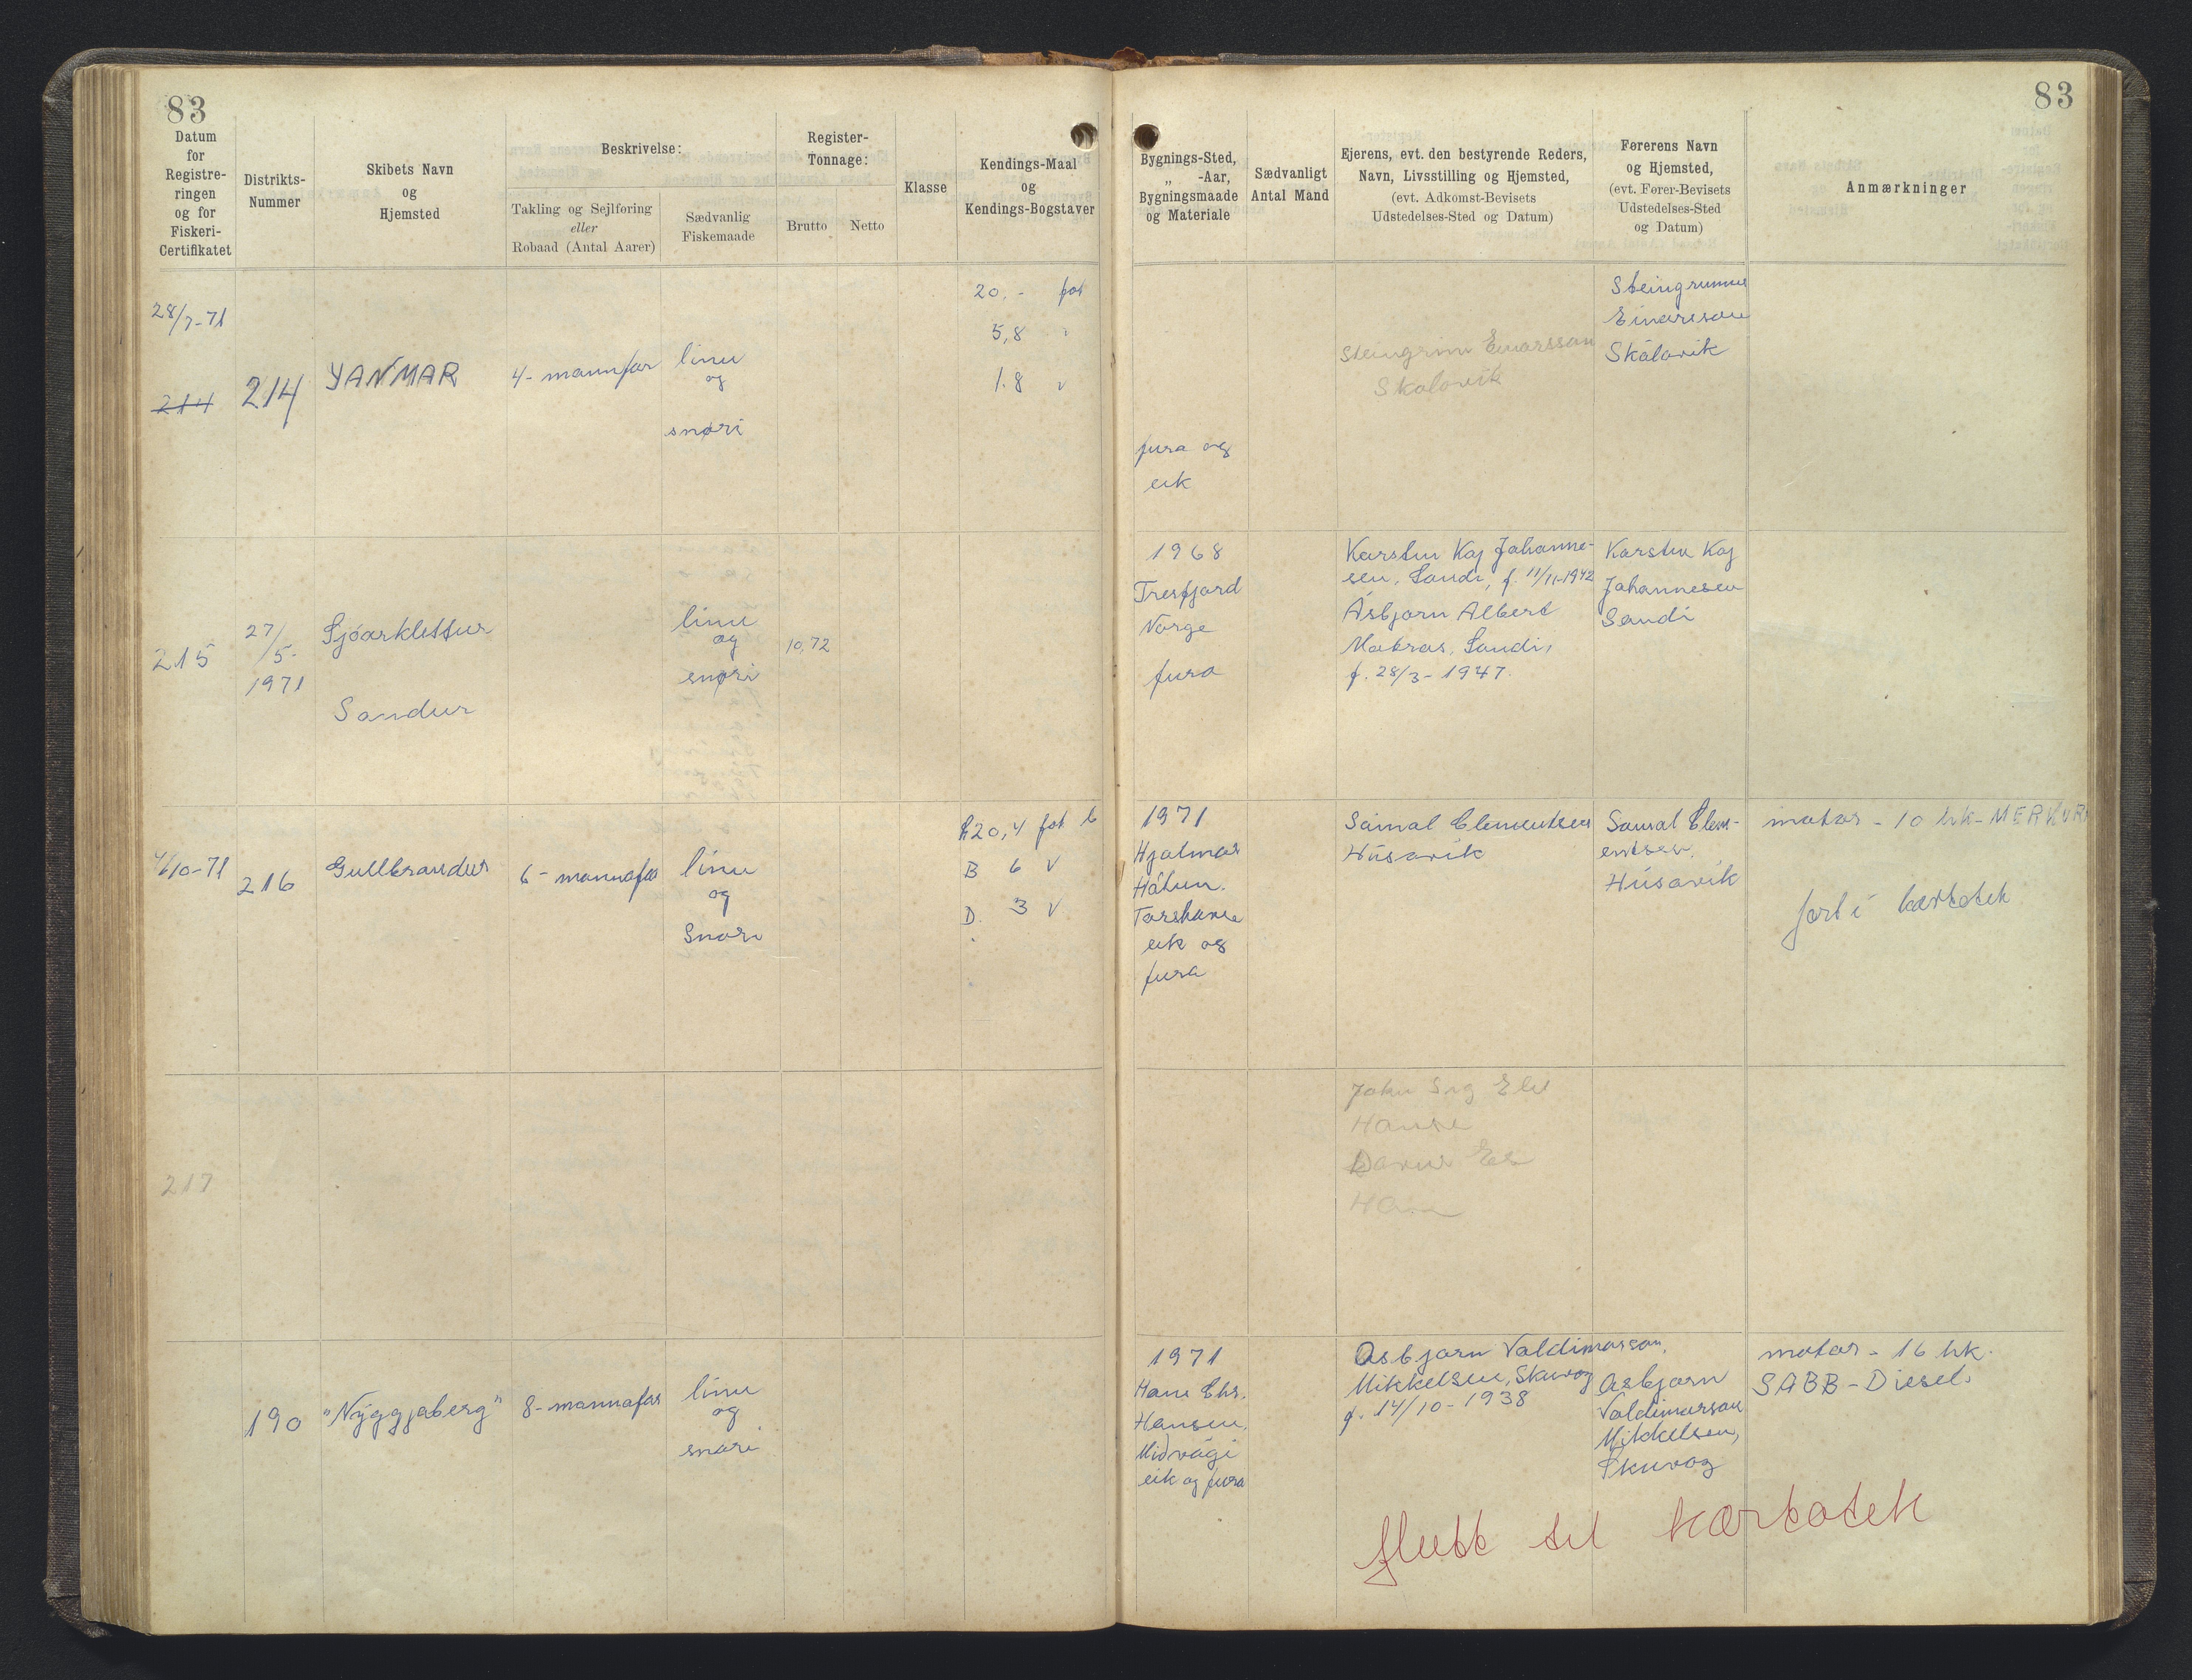 83
83
Datum
for
Registre-
ringen
og for
Fiskeri-
Certifikatet
Distrikts-
Nummer
Skibets Navn
og
Hjemsted
Beskrivelse:
Takling og Sejlføring
eller
Robaad (Antal Aarer)
Sædvanlig
Fiskemaade
Register-
Tonnage:
Brutto
Netto
Klasse
Kendings-Maal
og
Kendings-Bogstaver
Bygnings-Sted,
„ -Aar,
Bygningsmaade
og Materiale
Sædvanligt
Antal Mand
Ejerens, evt. den bestyrende Reders,
Navn, Livsstilling og Hjemsted,
(evt. Adkomst-Bevisets
Udstedelses-Sted og Datum)
Førerens Navn
og Hjemsted,
(evt. Fører-Bevisets
Udstedelses-Sted
og Datum)
Anmærkninger
28/7-71
214
214
YANMAR
4-mannfar
línu
og
snøri
20,- fot
5,8 "
1.8 "
fura og
eik
Steingrim Einarsson
Skálavík
Steingrímur
Einarsson
Skálavík
215
27/
5-
1971
Sjóarklettur
Sandur
línu
og
snøri
10,72
1968
Tresfjord
Norge
fura
Karsten Kaj Johanne-
sen, Sandi, f. 11/11-1942
Ásbjørn Albert
Makras, Sandi,
f. 28/3-1947.
Karsten Kaj
Johannesen
Sandi
4/10-71
216
Gullbrandur
6-mannafar
línu
og
Snøri
L 20,4 fot
B 6 "
D. 3 "
1971
Hjalmar
Hátún.
Tórshavn
eik og
fura
Sámal Clementsen
Húsavík
Sámal Clem-
entsen.
Húsavík
motor - 10 hk - MERKUR
ført í kartotek
217
Hanse
190
"Nýggjaberg"
8-mannafar
línu
og
snøri
1971
Hans Chr.
Hansen,
Miðvági
eik og fura
Asbjørn Valdimarson,
Mikkelsen, Skúvoy
f. 14/10-1938
Asbjørn
Valdimarson
Mikkelsen,
Skúvoy
motor - 16 hk.
SABB-Diesel.
flutt til kartotek